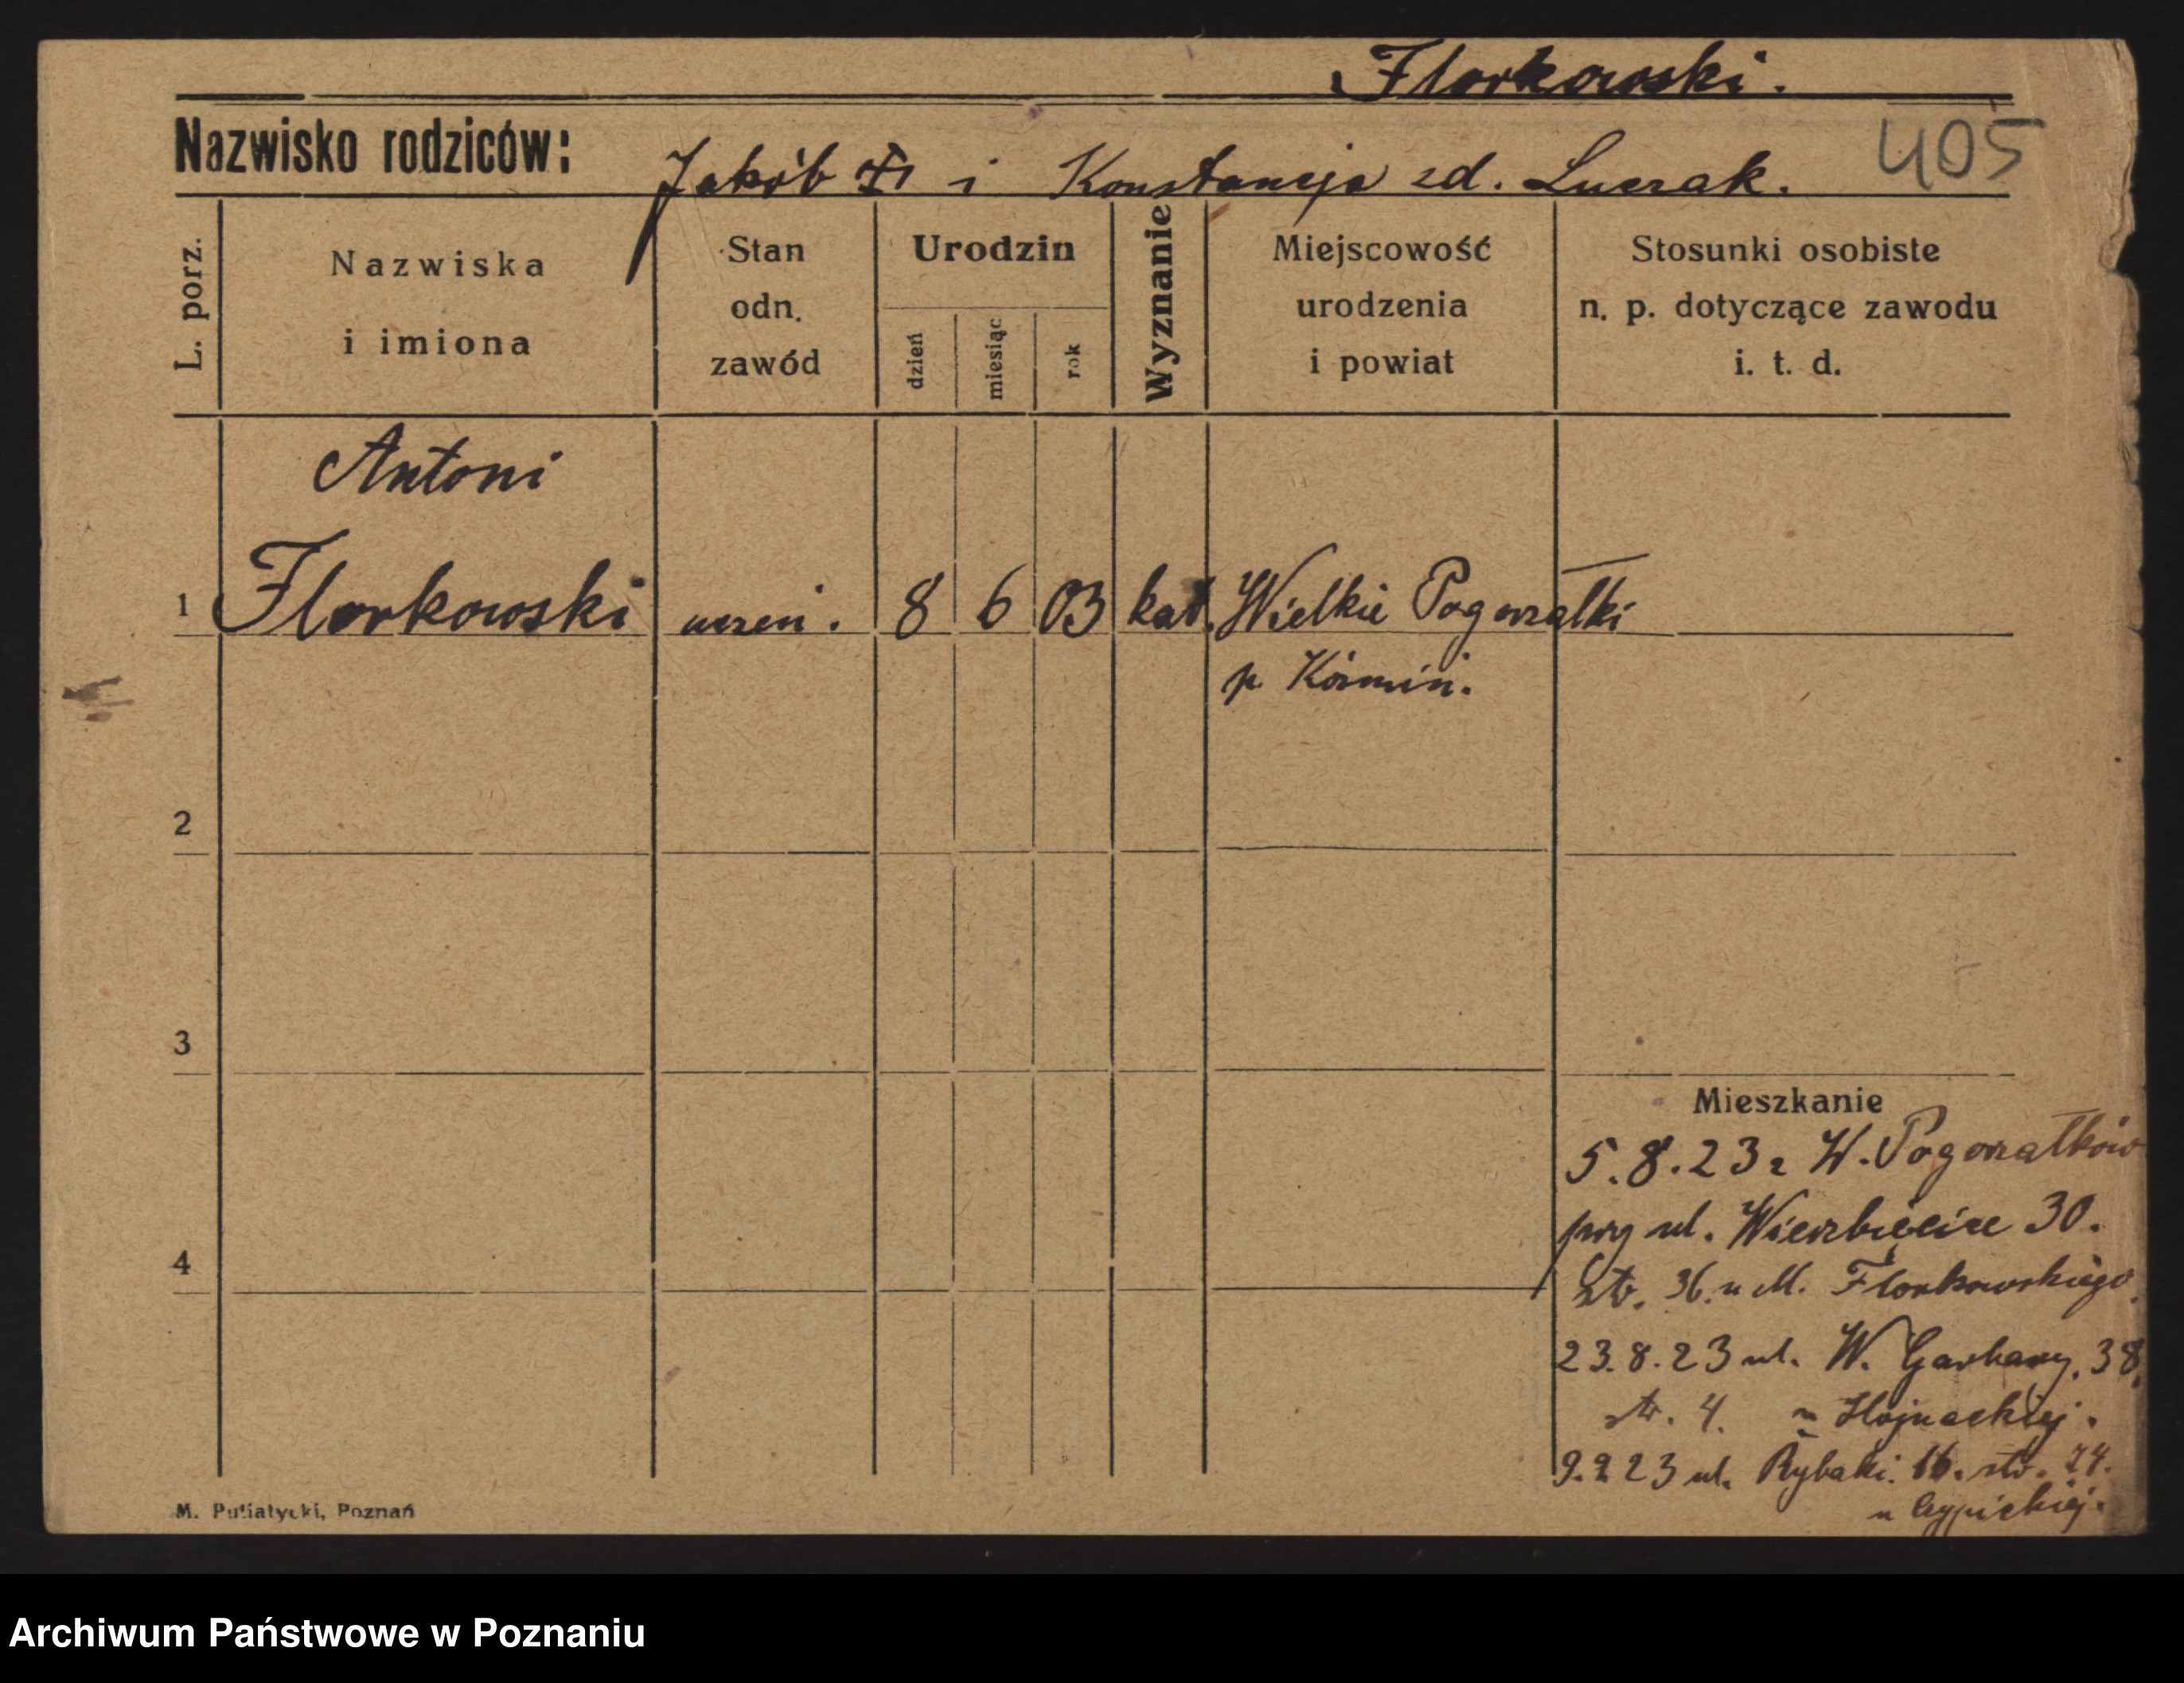 Florkowski.
405
Nazwisko rodziców:
Jakób i Konstancja zd. Luczak.
L. porz.
Nazwiska
i imiona
Stan
odn.
zawód
Urodzin
dzień
miesiąc
rok
Wyznanie
Miejscowość
urodzenia
i powiat
Stosunki osobiste
n. p. dotyczące zawodu
i. t. d.
Antoni
1 Florkowski uczeń. 8 6 03 kat. Wielkie Pogorzałki
p. Koźmin.
2
3
Mieszkanie
4
5.8.23 z W. Pogorzałków
przy ul. Wierzbięcice 30.
36. u M. Florkowskiego.
23.8.23 ul. W. Garbary. 38.
4. u Hojnackiej.
9.9 23 ul. Rybaki. 16. 24.
M. Putiatycki, Poznań
Archiwum Państwowe w Poznaniu